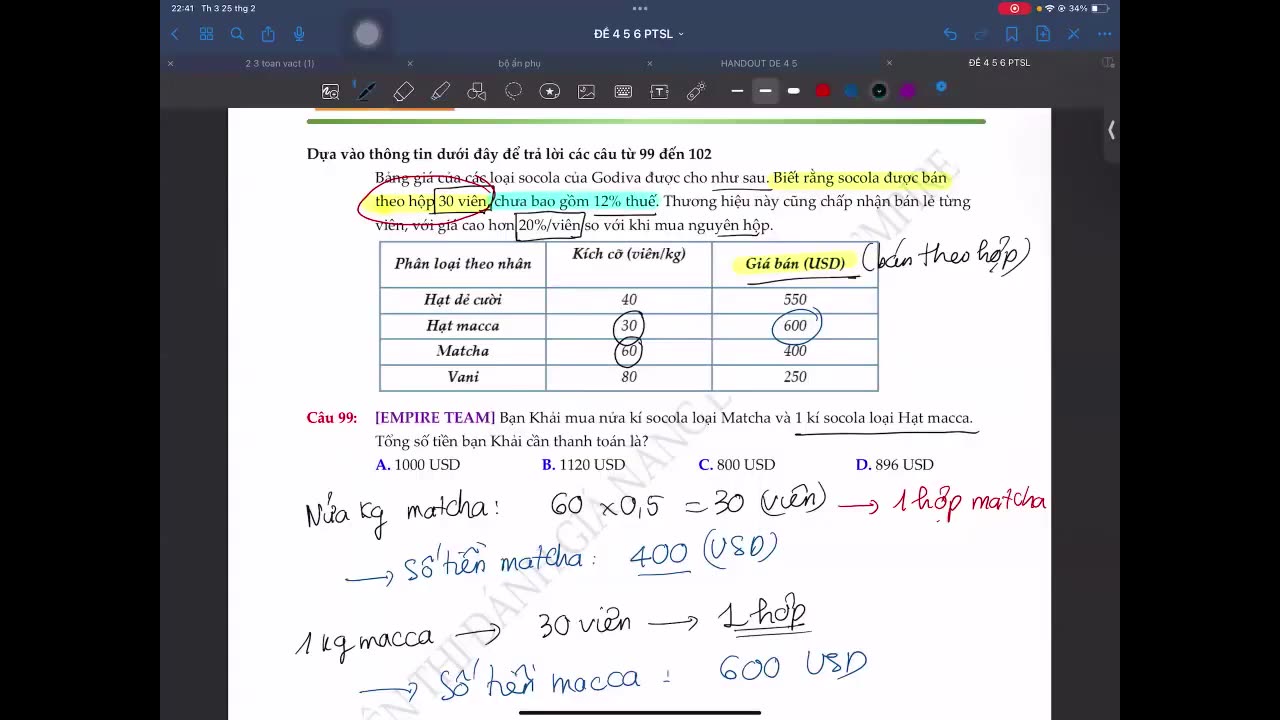 22:41 Th 3 25 thg 2
34%
ĐỀ 4 5 6 PTSL
2 3 toan vact (1)
bộ ẩn phụ
HANDOUT DE 4 5
ĐỀ 4 5 6 PTSL
Dựa vào thông tin dưới đây để trả lời các câu từ 99 đến 102
Bảng giá của các loại socola của Godiva được cho như sau. Biết rằng socola được bán
theo hộp 30 viên, chưa bao gồm 12% thuế. Thương hiệu này cũng chấp nhận bán lẻ từng
viên, với giá cao hơn 20%/viên so với khi mua nguyên hộp.
Phân loại theo nhân Kích cỡ (viên/kg) Giá bán (USD) (bán theo hộp)
Hạt dẻ cười 40 550
Hạt macca 30 600
Matcha 60 400
Vani 80 250
Câu 99: [EMPIRE TEAM] Bạn Khải mua nửa kí socola loại Matcha và 1 kí socola loại Hạt macca.
Tổng số tiền bạn Khải cần thanh toán là?
A. 1000 USD B. 1120 USD C. 800 USD D. 896 USD
Nửa kg matcha: 60 x 0,5 = 30 (viên) → 1 hộp matcha
→ Số tiền matcha: 400 (USD)
1 kg macca → 30 viên → 1 hộp
→ Số tiền macca: 600 USD